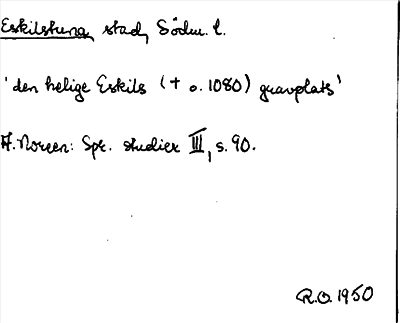 Eskilstuna, stad, Södm. l.
'den helige Eskils († o. 1080) gravplats'
A. Noreen: Spr. studier III, s. 90.
R.O. 1950